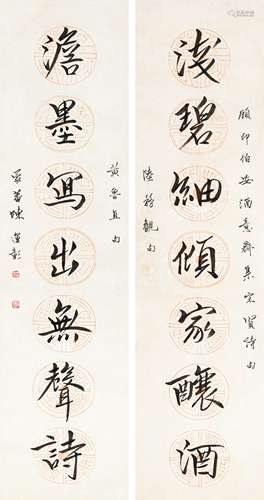 顧印伯安酒意齋集宋賢詩句
淺碧細傾家釀酒
陸務觀句
黃魯直句
澹墨寫出無聲詩
蒙盦陳運彰